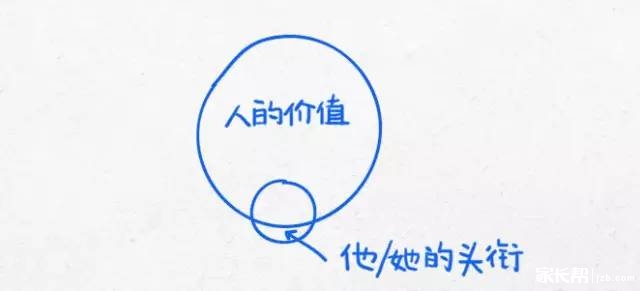 人的价值
他/她的头衔
家长帮 jzb.com